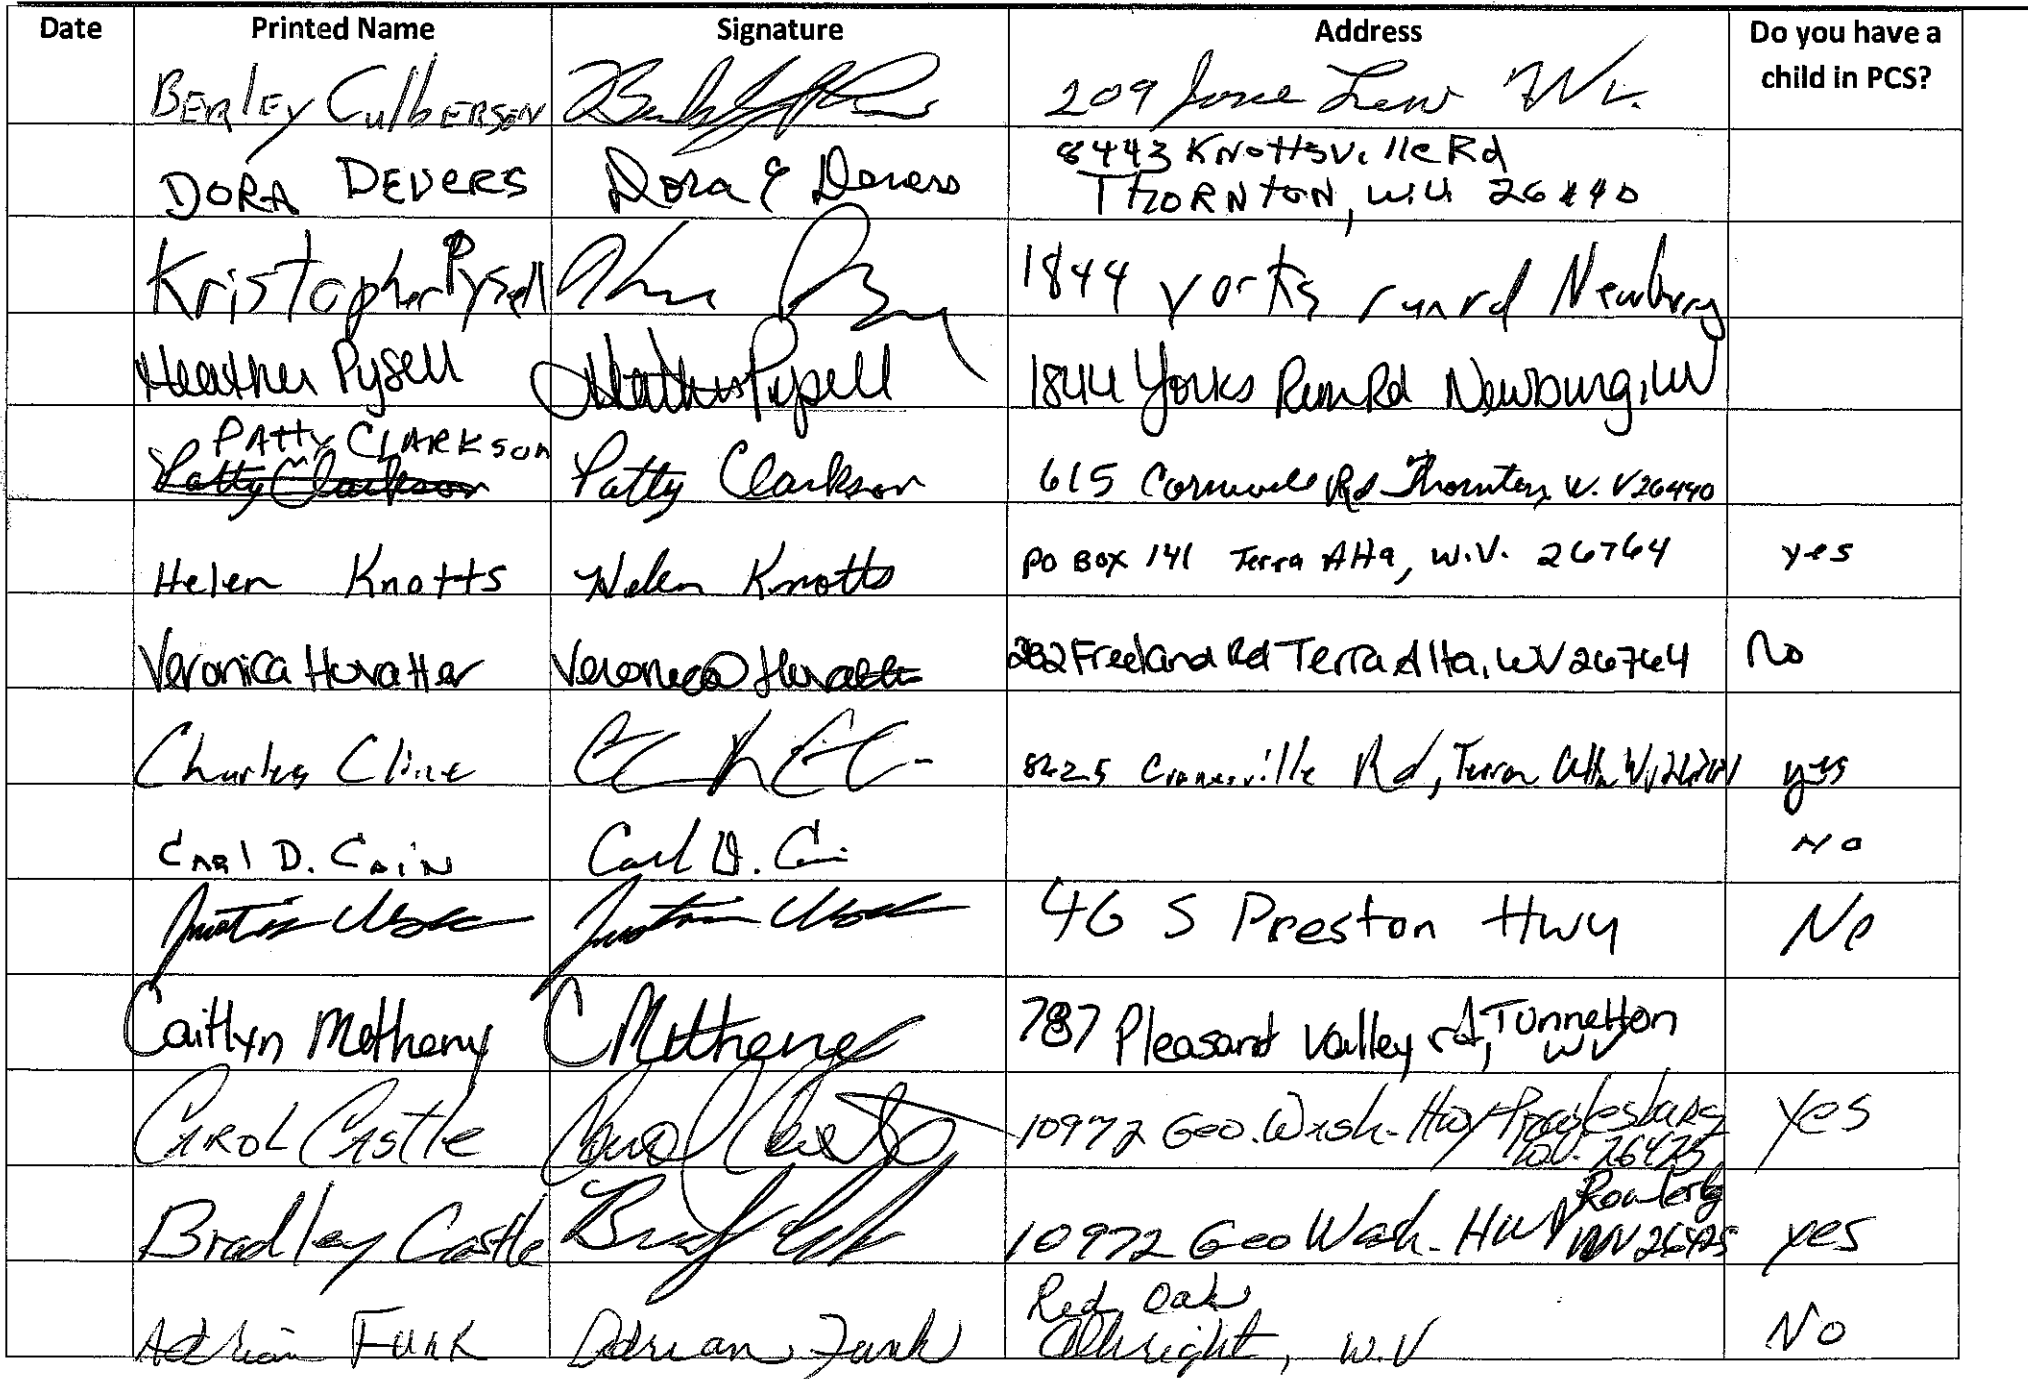 Date Printed Name Signature Address Do you have a child in PCS?
BERLEY CulBERSON 209 Jane Lew WV.
DORA DEVERS Dora E Devers 8443 Knottsville Rd
THORNTON, W.V 26440
Kristopher Pysell 1844 Yorks run rd Newburg
Heather Pysell Heather Pysell 1844 Yorks Run Rd Newburg, WV
PAtty CLARKSON
Patty Clarkson Patty Clarkson 615 Cornwell Rd Thornton, W.V 26440
Helen Knotts Helen Knotts PO Box 141 Terra Alta, W.V. 26764 yes
Veronica Huvatter Veronica Huvatter 282 Freeland Rd Terra Alta, WV 26764 No
Charles Cline 8625 Cranesville Rd, Terra Alta WV 26764 yes
CARl D. CAiN Carl D. Cain No
Justin 46 S Preston Hwy No
Caitlyn Metheny C Metheny 787 Pleasant Valley rd, Tunnelton WV
CAROL CAstle Carol Castle 10972 Geo. Wash. Hwy Rowlesburg W.V. 26425 yes
Bradley Castle 10972 Geo Wash. Hwy WV 26425 yes
Adrian Funk Adrian Funk Red Oak
Albright, W.V No